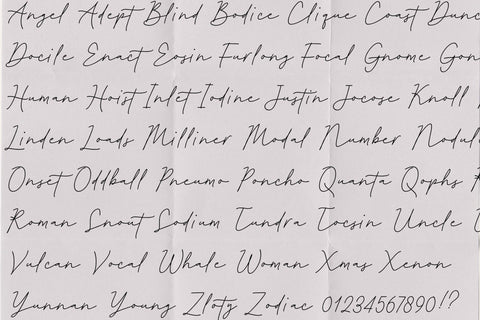 Angel Adept Blind Bodice Clique Coast Dunc
Docile Enact Eosin Furlong Focal Gnome Gon
Human Hoist Inlet Iodine Justin Jocose Knoll
Linden Loads Milliner Modal Number Nodul
Onset Oddball Pneumo Poncho Quanta Qophs
Roman Snout Sodium Tundra Tocsin Uncle
Vulcan Vocal Whale Woman Xmas Xenon
Yunnan Young Zloty Zodiac 01234567890!?